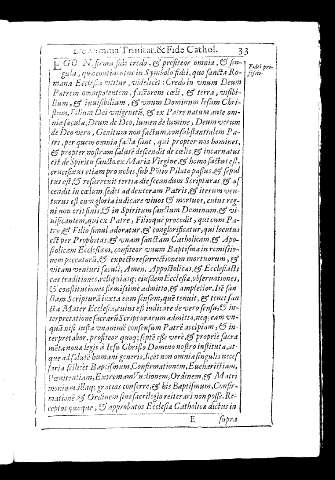 De Summa Trinitat. & Fide Cathol. 33
EGO N. firma fide credo, & profiteor omnia, & sin-
gula, quæ continentur in Symbolo fidei, quo sancta Ro-
mana Ecclesia vtitur, videlicet: Credo in vnum Deum
Patrem omnipotentem, factorem cœli, & terræ, visibi-
lium, & inuisibilium, & vnum Dominum Iesum Chri-
stum, Filium Dei vnigenitũ, & ex Patre natum ante om-
nia sæcula, Deum de Deo, lumen de lumine, Deum verum
de Deo vero, Genitum non factum, consubstantialem Pa-
tri, per quem omnia facta sunt, qui propter nos homines,
& propter nostram salutẽ descendit de cœlis, & incarnatus
est de Spiritu sancto ex Maria Virgine, & homo factus est,
crucifixus etiam pro nobis sub Põtio Pilato passus, & sepul
tus est, & resurrexit tertia die secundum Scripturas, & as
cendit in cœlum sedet ad dexteram Patris, & iterum ven-
turus est cum gloria iudicare viuos & mortuos, cuius reg-
ni non erit finis, & in Spiritum sanctum Dominum, & vi-
uificantem, qui ex Patre, Filioque procedit, qui cum Pa-
tre & Filio simul adoratur, & conglorificatur, qui locutus
est per Prophetas, & vnam sanctam Catholicam, & Apo-
stolicam Ecclesiam, confiteor vnum Baptisma in remissio-
nem peccatorũ, & expecto resurrectionem mortuorum, &
vitam venturi sæculi, Amen. Apostolicas, & Ecclesiasti
cas traditiones, reliquasq; eiusdem Ecclesiæ, obseruationes,
& constitutiones firmissime admitto, & amplector. Itẽ san
ctam Scripturã iuxta eum sensum, quẽ tenuit, & tenet san
cta Mater Ecclesia, cuius est iudicare de vero sensu, & in-
terpretatione sacrarũ Scripturarum admitto, nec eam vn-
quã nisi iuxta vnanimẽ consensum Patrũ accipiam, & in-
terpretabor, profiteor quoq; septẽ esse verè, & propriè sacra
mẽta nouæ legis à Iesu Christo Domino nostro instituta, at-
que ad salutẽ humani generis, licet non omnia singulis neces
saria scilicet Baptismum, Confirmationem, Eucharistiam,
Pœnitentiam, Extremam Vnctionem, Ordinem, & Matri
monium illaq; gratiam conferre, & his Baptismum, Confir-
mationẽ & Ordinem sine sacrilegio reiterari non posse. Re-
ceptos quoque, & approbatos Ecclesiæ Catholicæ dictus in
E supra
Fidei pro-
fessio.